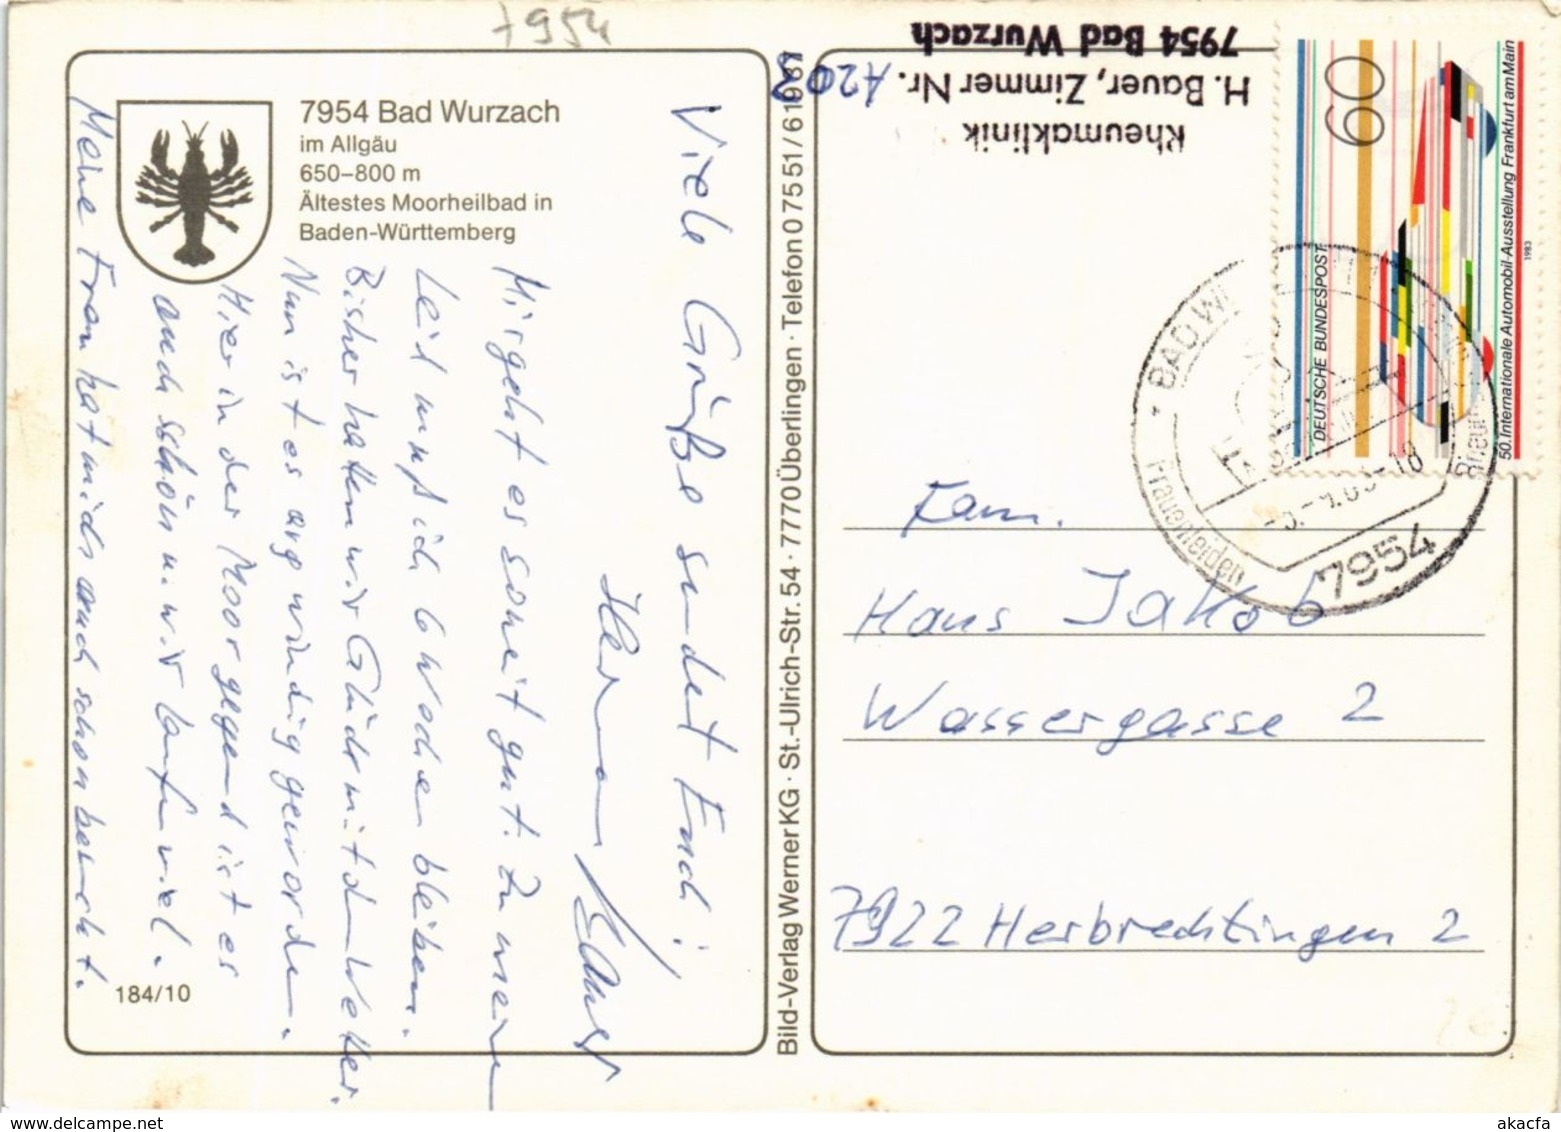 7954
7954 Bad Wurzach
im Allgäu
650–800 m
Ältestes Moorheilbad in
Baden-Württemberg
Viele Grüße sendet Euch;
Hermann
Mir geht es soweit gut. Zu mein
Leid muß ich 6 Wochen bleiben.
Bisher hatten wir Glück mit dem Wetter.
Nun ist es arg windig geworden.
Hier in der Moorgegend ist es
auch schön u. wir laufen viel.
Meine Frau hat mich auch schon besucht.
184/10
Bild-Verlag Werner KG · St.-Ulrich-Str. 54 · 7770 Überlingen · Telefon 0 75 51 / 6 19 81
Rheumaklinik
H. Bauer, Zimmer Nr. A203
7954 Bad Wurzach
60
DEUTSCHE BUNDESPOST
50. Internationale Automobil-Ausstellung Frankfurt am Main
1983
BAD WU
Frauenleiden
Rheum
-18
7954
Fam.
Hans Jakob
Wassergasse 2
7922 Herbrechtingen 2
akpool.co.uk
akacfa